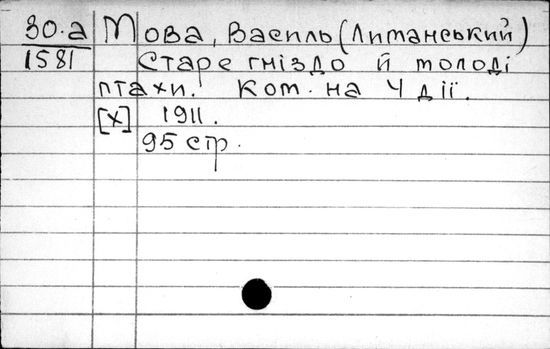 30.а Мова, Василь (Лиманський)
1581 Старе гніздо й молоді
птахи. Ком. на 4 дії.
[X] 1911.
95 стр.